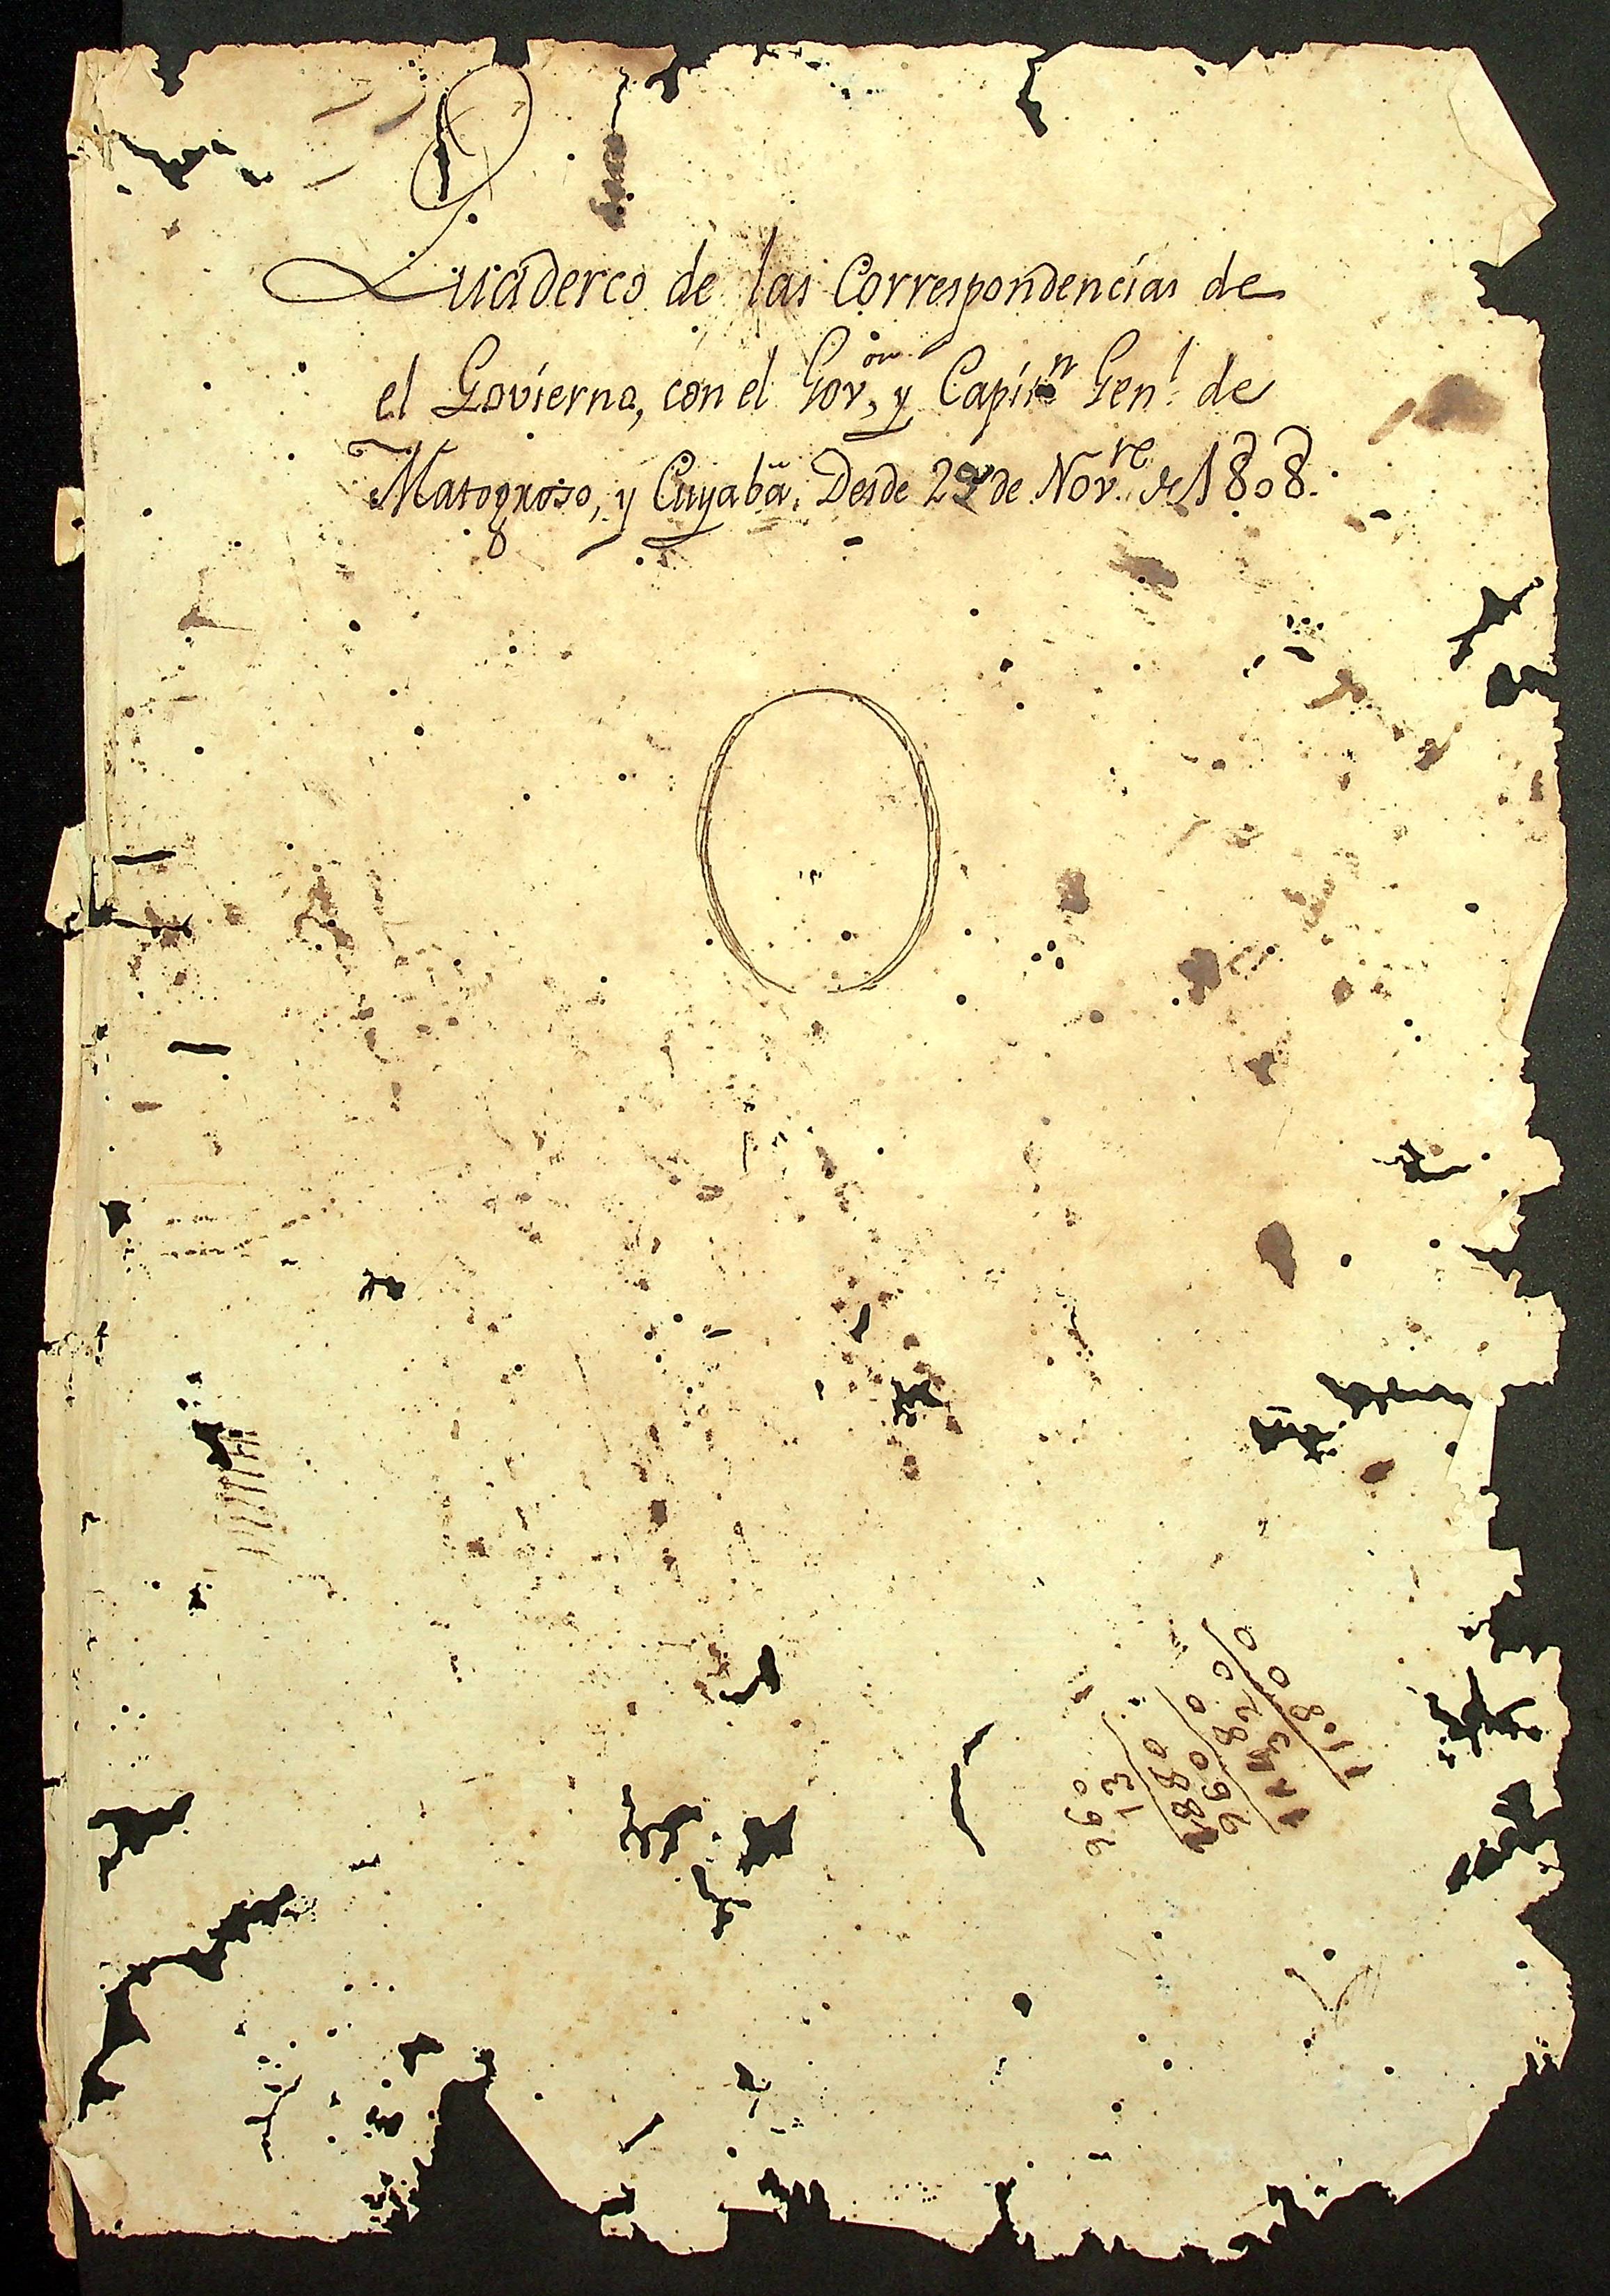 Quaderco de las Correspondencias de
el Govierno, con el Gov.or, y Capitn Genl. de
Matogroso, y Cuyabã. Desde 29 de Nov.re de 1808.